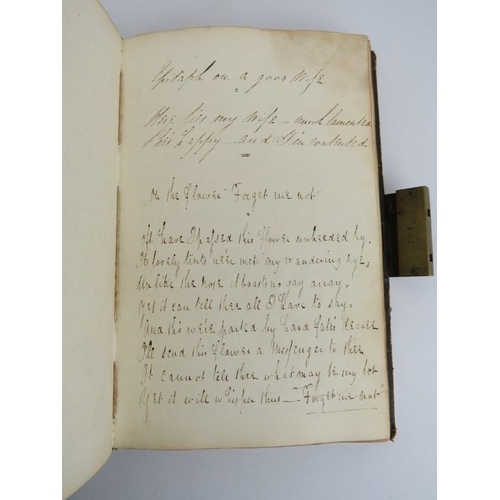 Epitaph on a good Wife
Here lies my wife – much lamented
She's happy – and I'm contented
On the flower "Forget me not"
Oft have I passed this flower unheeded by.
Its lovely tints ne'er met my wandering eye,
Unlike the rose it boasts no gay array.
Yet it can tell thee all I have to say.
And tho' we're parted by hard fate's decree
I'll send this flower a messenger to thee
It cannot tell thee what may be my lot
Yet it will whisper thus – "Forget me not"